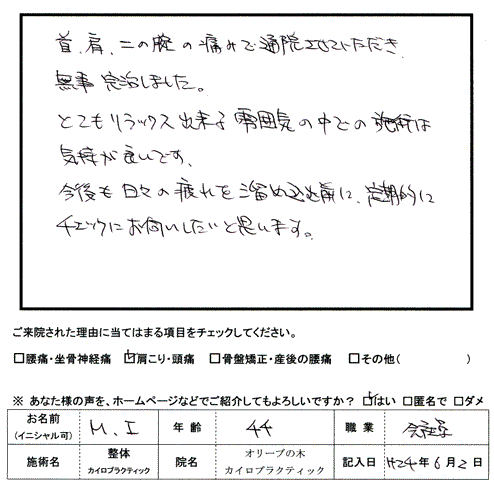 首、肩、二の腕の痛みで通院させていただき、
無事完治しました。
とてもリラックス出来る雰囲気の中での施術は
気持が良いです、
今後も日々の疲れを溜め込む前に、定期的に
チェックにお伺いしたいと思います。
ご来院された理由に当てはまる項目をチェックしてください。
□腰痛・坐骨神経痛 ☑肩こり・頭痛 □骨盤矯正・産後の腰痛 □その他( )
※ あなた様の声を、ホームページなどでご紹介してもよろしいですか？ ☑はい □匿名で □ダメ
お名前 (イニシャル可) M. I 年齢 44 職業 会社員
施術名 整体 カイロプラクティック 院名 オリーブの木 カイロプラクティック 記入日 H24年6月2日